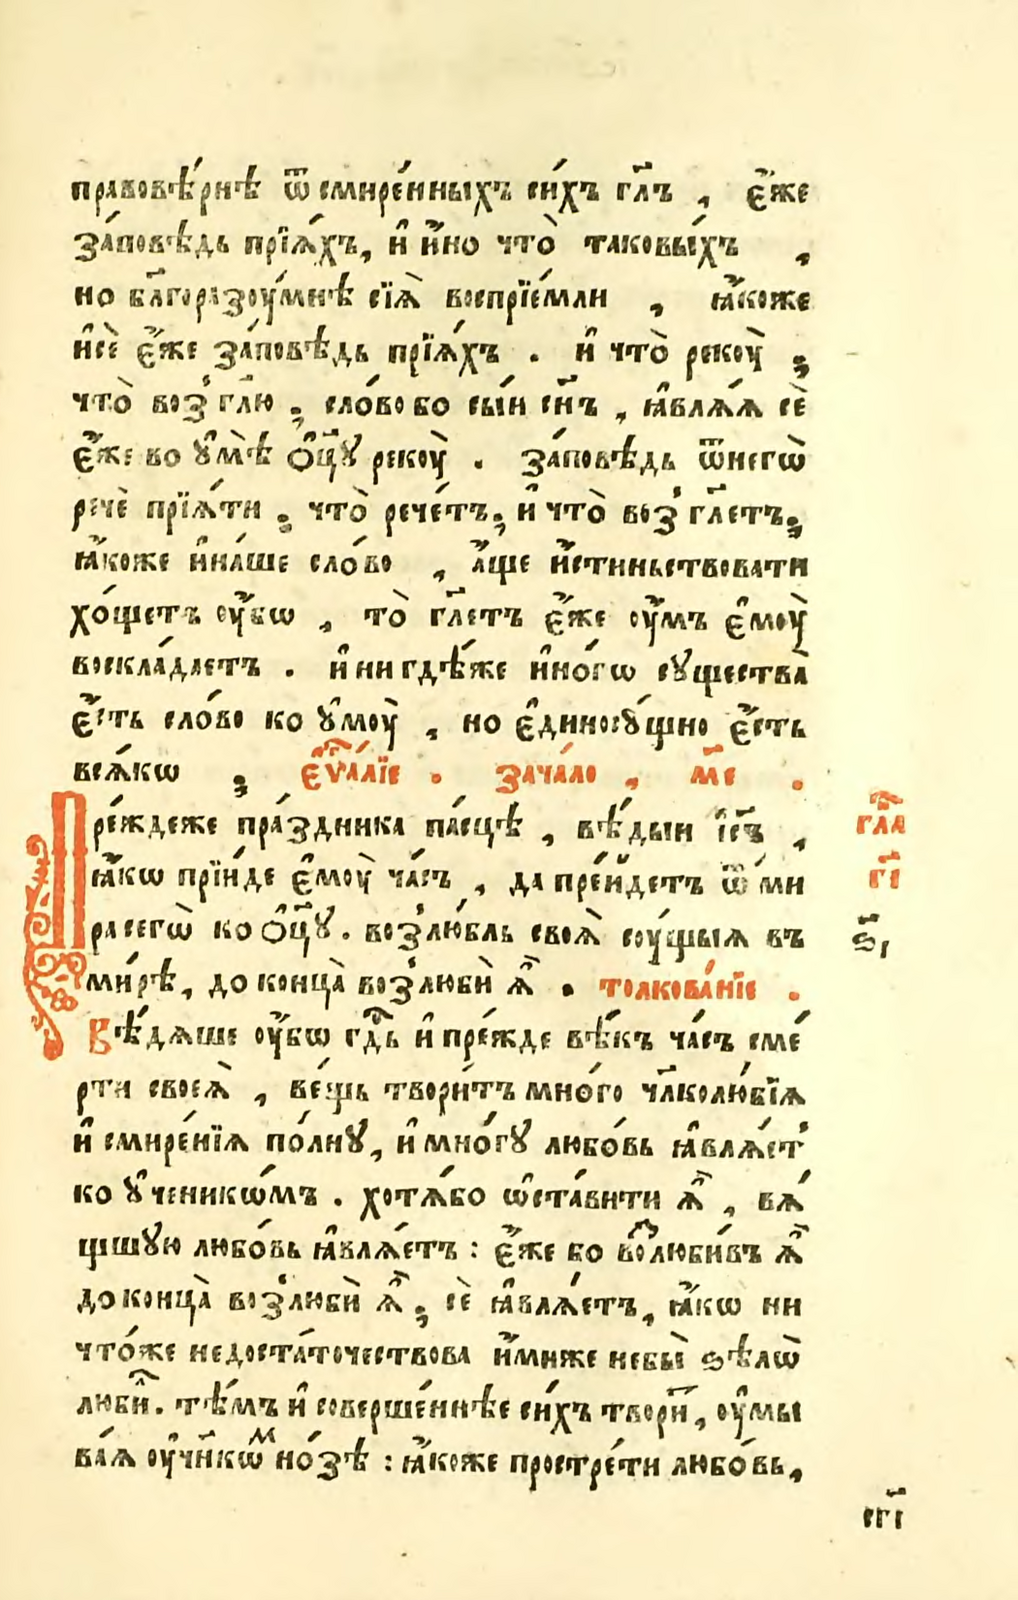 правовѣ́рнѣ ѿ смире́нныхъ си́хъ гл҃ъ , є҆́же
за́повѣдь прїѧ́хъ, и҆ и҆́но что̀ таковы́хъ ,
но бл҃горазоу́мнѣ сїѧ̀ воспрїе́мли , ꙗ҆́коже
и҆сѐ є҆́же за́повѣдь прїѧ́хъ . и҆ что̀ рекоу̀ ;
что̀ воз̾гл҃ю ; сло́во бо сы́й сн҃ъ , ꙗ҆влѧ́ѧ сѐ
є҆́же во ᲂу҆мѣ̀ ѻ҆ц҃ꙋ рекоу̀ . за́повѣдь ѿнегѡ̀
речѐ прїѧ́ти ; что̀ рече́тъ ; и҆ что̀ воз̾гл҃етъ ;
ꙗ҆́коже и҆на́ше сло́во , а҆́ще и҆́стиньствовати
хо́щетъ оу҆́бѡ , то̀ гл҃етъ є҆́же оу҆́мъ є҆моу̀
воскла́даетъ . и҆ ни гдѣ́же и҆но́гѡ сꙋщества̀
є҆́сть сло́во ко ꙋ҆моу̀ , но є҆диносꙋ́щно є҆́сть
всѧ́кѡ ; є҆ѵⷢ҇а́лїе . зача́ло , м҃е .
Пре́ждеже пра́здника па́сцѣ , вѣ́дыи і҆с҃ъ ,
ꙗ҆́кѡ прїи́де є҆моу̀ ча́съ , да пре́йдетъ ѿ ми́
ра сегѡ̀ ко ѻ҆ц҃ꙋ . воз̾лю́бль своѧ̀ соу́щыѧ въ
ми́рѣ, до конца̀ воз̾любѝ ѧ҆̀ . толкова́нїе .
Вѣ́дѧше оу҆́бѡ гдⷭ҇ь и҆ пре́жде вѣ́къ ча́съ сме́
рти своеѧ̀ , ве́щь твори́тъ мно́го чл҃колю́бїѧ
и҆ смире́нїѧ по́лнꙋ, и҆ мно́гꙋ любо́вь ꙗ҆влѧ́ет̾
ко ꙋ҆ченикѡ́мъ . хотѧ́бо ѡ҆ста́вити ѧ҆̀ , вѧ́
щшꙋю любо́вь ꙗ҆влѧ́етъ : є҆́же бо воⷥ҇люби́въ ѧ҆̀
до конца̀ воз̾любѝ ѧ҆̀ ; сѐ ꙗ҆влѧ́етъ, ꙗ҆́кѡ ни
что́же недоста́точествова и҆́миже небы̀ ѕѣлѡ̀
люби́л . тѣ́мъ и҆ соверше́ннѣе си́хъ твори́т, оу҆мы
ва́ѧ оу҆чн҃кѡⷨ но́зѣ : ꙗ҆́коже простре́ти любо́вь,
глⷡ҇а
г҃і
ѕ҃і
сг҃і